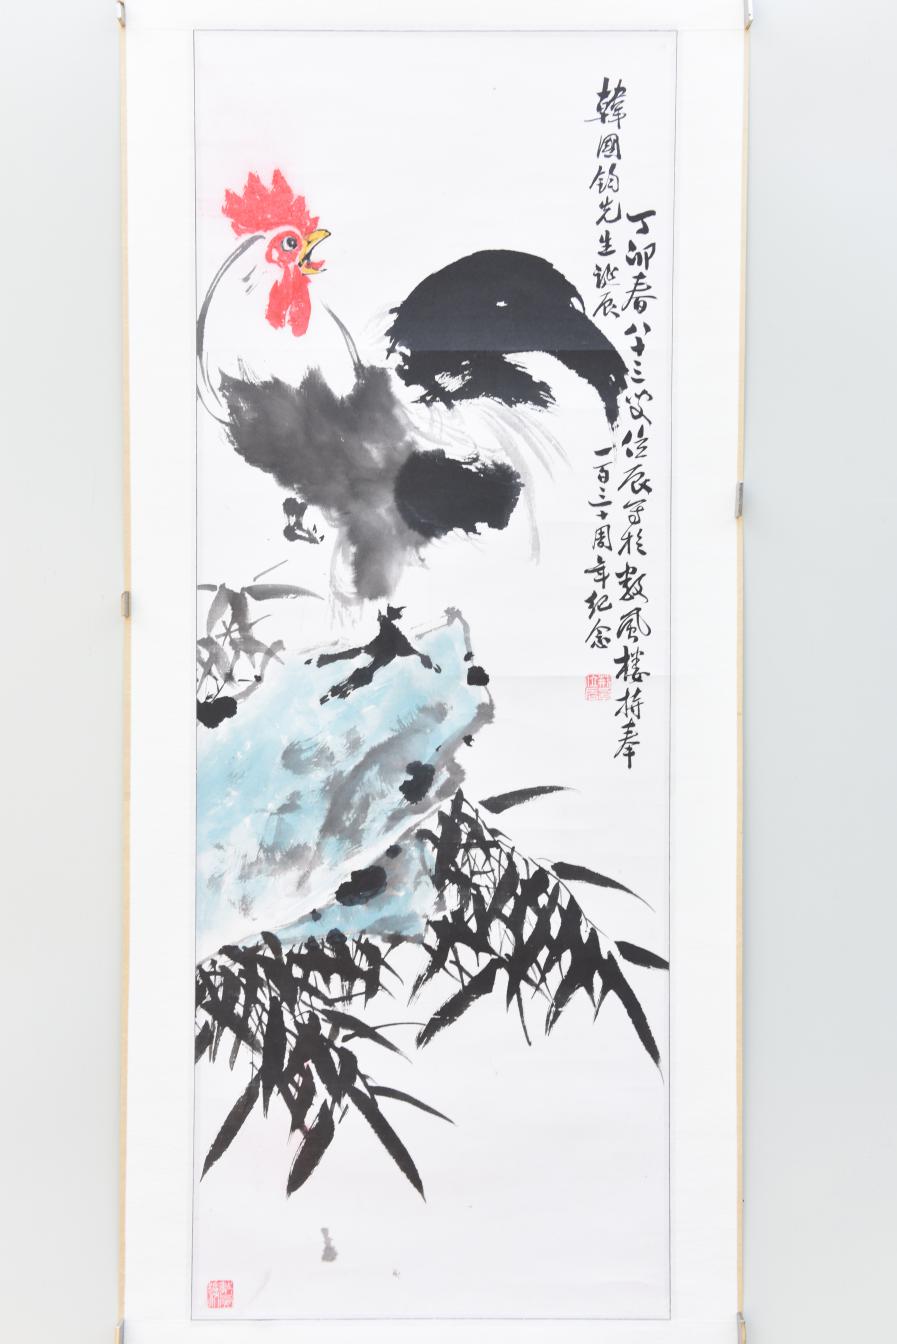 丁卯春八十三叟位辰写於数風楼持奉
韓國鈞先生誕辰
一百三十周年纪念